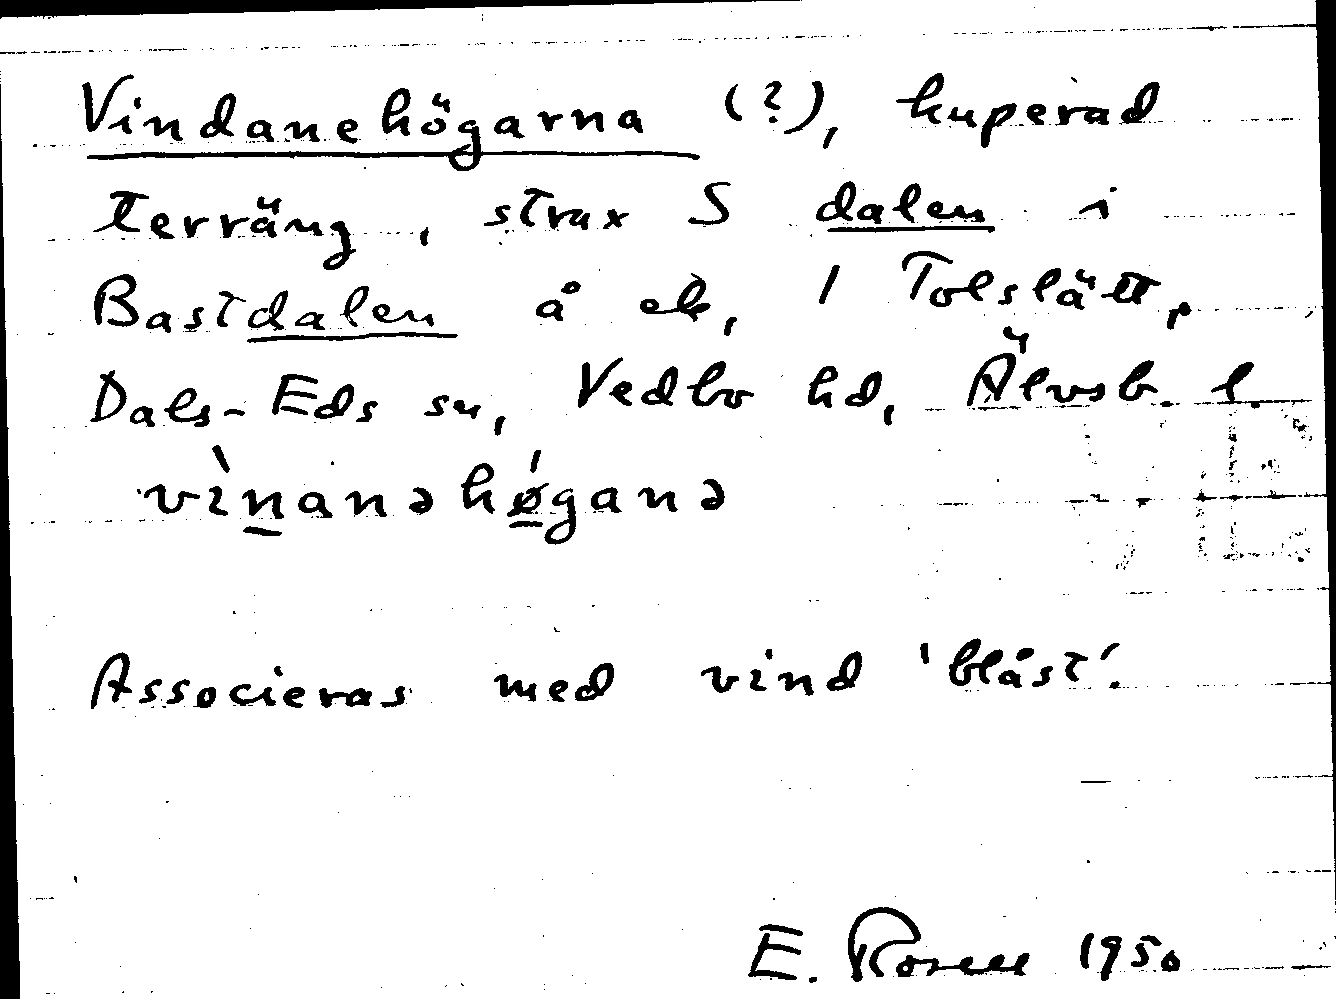 Vindanehögarna (?), kuperad
terräng, strax S dalen i
Bastdalen å ek, 1 Tolslätt,
Dals-Eds sn, Vedbo hd, Älvsb. l.
vìnanəhǿganə
Associeras med vind 'blåst'.
E. Rosell 1950